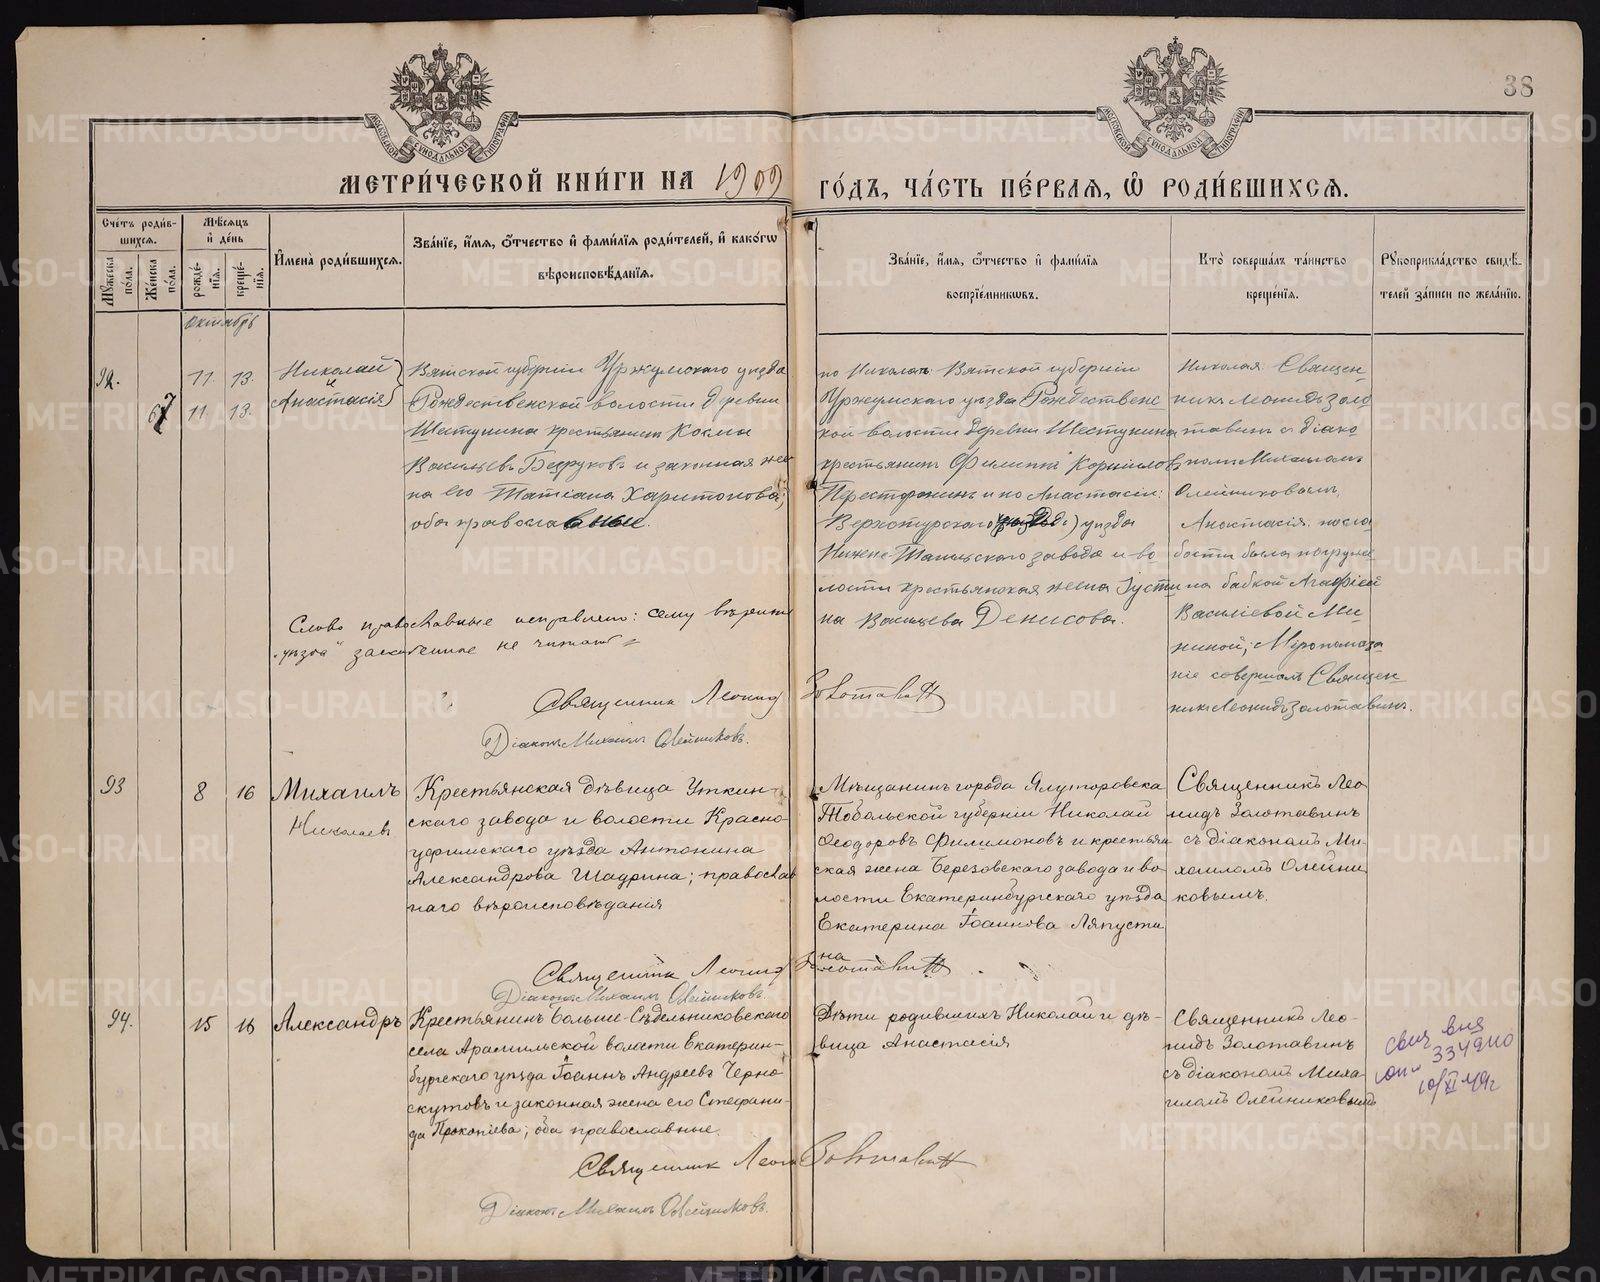 38
МОСКОВСКОЙ СѴНОДАЛЬНОЙ ТИПОГРАФІИ
МОСКОВСКОЙ СѴНОДАЛЬНОЙ ТИПОГРАФІИ
МЕТРИ́ЧЕСКОЙ КНИ́ГИ НА 1909 ГО́ДЪ, ЧА́СТЬ ПЕ́РВАЯ, Ѽ РОДИ́ВШИХСЯ.
Сче́тъ роди́в-
шихся.
Му́жеска по́ла.
Же́нска по́ла.
Мѣ́сяцъ
и҆ де́нь
рожде́-
нїя.
креще́-
нїя.
И҆мена̀ роди́вшихся.
Зва́нїе, и҆́мя, ѻ҆́тчество и҆ фами́лїя роди́телей, и҆ како́гѡ
вѣроисповѣ́данїя.
Зва́нїе, и҆́мя, ѻ҆́тчество и҆ фами́лїя
воспрїе́мникѡвъ.
Кто̀ соверша́лъ та́инство
креще́нїя.
Рꙋкоприкла́дство свидѣ́-
телей за́писи по жела́нїю.
Октябрь
92.
67
11. 13.
11. 13.
Николай
и
Анастасія
Вятской губерніи Уржумскаго уѣзда
Рождественской волости деревни
Шестунина крестьянинъ Косма
Васильевъ Безруковъ и законная же-
на его Татіана Харитонова;
оба православные.
по Николаѣ: Вятской губерніи
Уржумскаго уѣзда Рождественс-
кой волости деревни Шестунина
крестьянинъ Филиппъ Корниловъ
Пересторонинъ и по Анастасіи:
Верхотурскаго (уѣзда) уѣзда
Нижне-Тагильскаго завода и во-
лости крестьянская жена Іусти-
на Васильева Денисова.
Николая: Священ-
никъ Леонидъ Золо-
тавинъ съ діако-
номъ Михаиломъ
Олейниковымъ,
Анастасія: по сла-
бости была погруже-
на бабкой Агафіей
Василіевой Ми-
ниной; Мѵропомаза-
ніе совершалъ Священ-
никъ Леонидъ Золотавинъ.
Слово православные исправлено: сему вѣрить
"уѣзда" зачеркнутое не читать
Священникъ Леонид Золотавин
Діаконъ Михаилъ Олейниковъ.
93
8 16
Михаилъ
Николаевъ
Крестьянская дѣвица Уткин-
скаго завода и волости Красно-
уфимскаго уѣзда Антонина
Александрова Шадрина; православ-
наго вѣроисповѣданія
Мѣщанинъ города Ялуторовска
Тобольской губерніи Николай
Ѳеодоровъ Филимоновъ и крестьян-
ская жена Березовскаго завода и во-
лости Екатеринбургскаго уѣзда
Екатерина Іоаннова Ляпусти-
на
Священникъ Лео-
нидъ Золотавинъ
съ діакономъ Ми-
хаиломъ Олейни-
ковымъ.
Священникъ Леонид Золотавин
Діаконъ Михаилъ Олейниковъ.
94.
15 16
Александръ
Крестьянинъ Больше-Сѣдельниковскаго
села Арамильской волости Екатерин-
бургскаго уѣзда Іоаннъ Андреевъ Черно-
скутовъ и законная жена его Стефани-
да Прокопіева; оба православные.
Дѣти родившихъ Николай и дѣ-
вица Анастасія
Священникъ Лео-
нидъ Золотавинъ
съ діакономъ Миха-
иломъ Олейниковымъ
3349110
10/XI 49г
Священникъ Леонид Золотавин
Діаконъ Михаилъ Олейниковъ.
METRIKI.GASO-URAL.RU